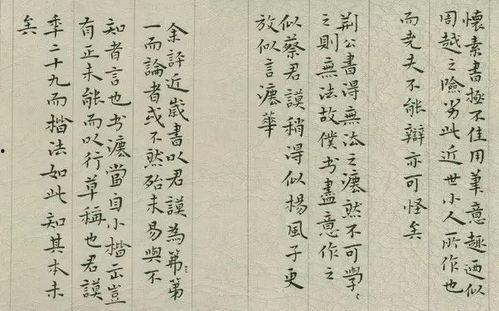 懷素書極不佳用筆意趣迺似
周越之險劣此近世小人所作也
而堯夫不能辯亦可怪矣
荆公書得無法之瀍然不可學〻
之則無法故僕书盡意作之
似蔡君謨稍得似楊風子更
放似言瀍華
余評近崴書以君謨為第〻
一而論者或不然殆未易與不
知者言也书瀍當自小楷出豈
有正未能而以行草稱也君謨
秊二十九而楷法如此知其本未
矣